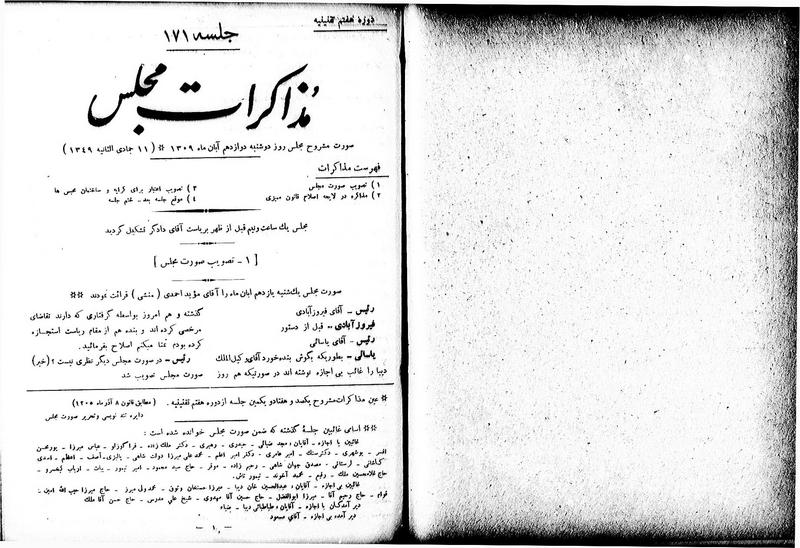 دورهٔ هفتم تقنینیه
جلسه ۱۷۱
مذاکرات مجلس
صورت مشروح مجلس روز دوشنبه دوازدهم آبان ماه ۱۳۰۹ ※ ( ۱۱ جمادی الثانیه ۱۳۴۹ )
فهرست مذاکرات
۱ ) تصویب صورت مجلس
۲ ) مذاکره در لایحه اصلاح قانون ممیزی
۳ ) تصویب اعتبار برای کرایه و ساختمان محبس ها
۴ ) موقع جلسه بعد - ختم جلسه
مجلس یك ساعت ونیم قبل از ظهر بریاست آقای دادگر تشکیل گردید
[ ۱ - تصویب صورت مجلس ]
صورت مجلس یك‌شنبه یازدهم آبان ماه را آقای مؤید احمدی ( منشی ) قرائت نمودند ※※
رئیس - آقای فیروزآبادی
فیروزآبادی - قبل از دستور
رئیس - آقای یاسائی
یاسائی - بطوریکه بگوش بنده خورد آقای وکیل‌الملك
دیبا را غائب بی اجازه نوشته اند در صورتیکه هم روز
گذشته و هم امروز بواسطه گرفتاری که دارند تقاضای
مرخصی کرده اند و بنده هم از مقام ریاست استجازه
کرده بودم تمنا میکنم اصلاح بفرمائید.
رئیس - در صورت مجلس دیگر نظری نیست ؟ (خیر)
صورت مجلس تصویب شد
※ عین مذاکرات مشروح یکصد و هفتاد و یکمین جلسه از دوره هفتم تقنینیه . ( مطابق قانون ۸ آذر ماه ۱۳۰۵ )
دایره تند نویسی و تحریر صورت مجلس
※※ اسامی غائبین جلسهٔ گذشته که ضمن صورت مجلس خوانده شده است :
غائبین با اجازه - آقایان : مجد ضیائی - حیدری - رهبری - دکتر ملك زاده - قراگوزلو - عباس میرزا -
افسر - بوشهری - دکتر سنك - امیر عامری - دکتر امیر اعلم - محمد علی میرزا دولت شاهی - آصف - اعظم -
کاشانی - لرستانی - مصدق جهان شاهی - رحیم زاده - موقر - حاج سید محمود - امیر تیمور - بیات - ارباب کیخسرو -
حاج غلامحسین ملك - رفیع - محمد آخوند - تیمور تاش.
غائبین بی اجازه - آقایان : عبدالحسین خان دیبا - میرزا حسنخان وثوق - محمد ولی میرزا - حاج میرزا حبیب الله امین -
قوام - حاج رحیم آقا - میرزا ابوالفضل - حاج حسین آقا مهدوی - شیخ علی مدرس - حاج حسن آقا ملك
دیر آمدگان با اجازه - آقایان : طباطبائی دیبا - ضیاء
دیر آمده بی اجازه - آقای مسعود
- ۱ -